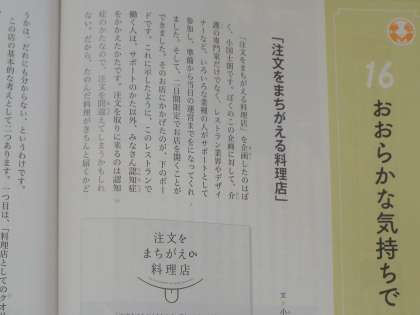 16
おおらかな気持ちで
「注文をまちがえる料理店」
文・小
「注文をまちがえる料理店」を企画したのはぼ
く、小国士朗です。ぼくのこの企画に対して、介
護の専門家だけでなく、レストラン業界やデザイ
ナーなど、いろいろな業種の人がサポートとして
参加し、準備から当日の運営までをになってくれ
ました。そして、二日間限定でお店を開くことが
できました。そのお店にかかげたのが、下のボー
ドです。これに示したように、このレストランで
働く人は、サポートのかた以外、みなさん認知症
をかかえたかたです。注文を取りに来るのは認知
症のかたなので、注文を間違えてしまうかもしれ
ない。だから、たのんだ料理がきちんと届くかど
注文を
まちがえる
料理店
うかは、だれにも分からない、というわけです。
この店の基本的な考えとして二つあります。一つ目は、「料理店としてのクオ